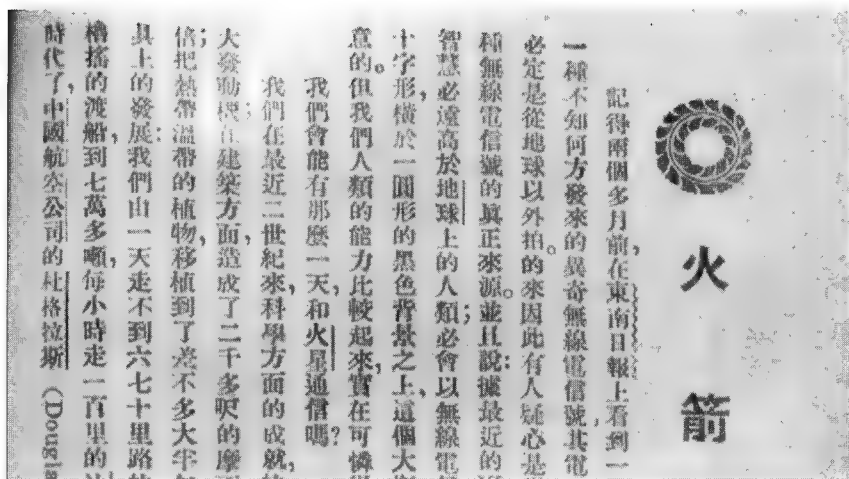 火箭
記得兩個多月前,在東南日報上看到一
一種不知何方發來的異奇無線電信號,其電
必定是從地球以外拍的來。因此有人疑心是
種無線電信號的眞正來源。並且說:據最近的
智慧必遠高於地球上的人類;必會以無線電
十字形,橫於一圓形的黑色背景之上,這個大
意的。但我們人類的能力比較起來,實在可憐
我們會能有那麼一天,和火星通信嗎?
我們在最近二世紀來,科學方面的成就,
大發動機;在建築方面,造成了二千多呎的摩
倍;把熱帶溫帶的植物,移植到了差不多大半
具上的發展:我們由一天走不到六七十里路
櫓搖的渡船,到七萬多噸,每小時走二百里的
時代了,中國航空公司的杜格拉斯(Dougla